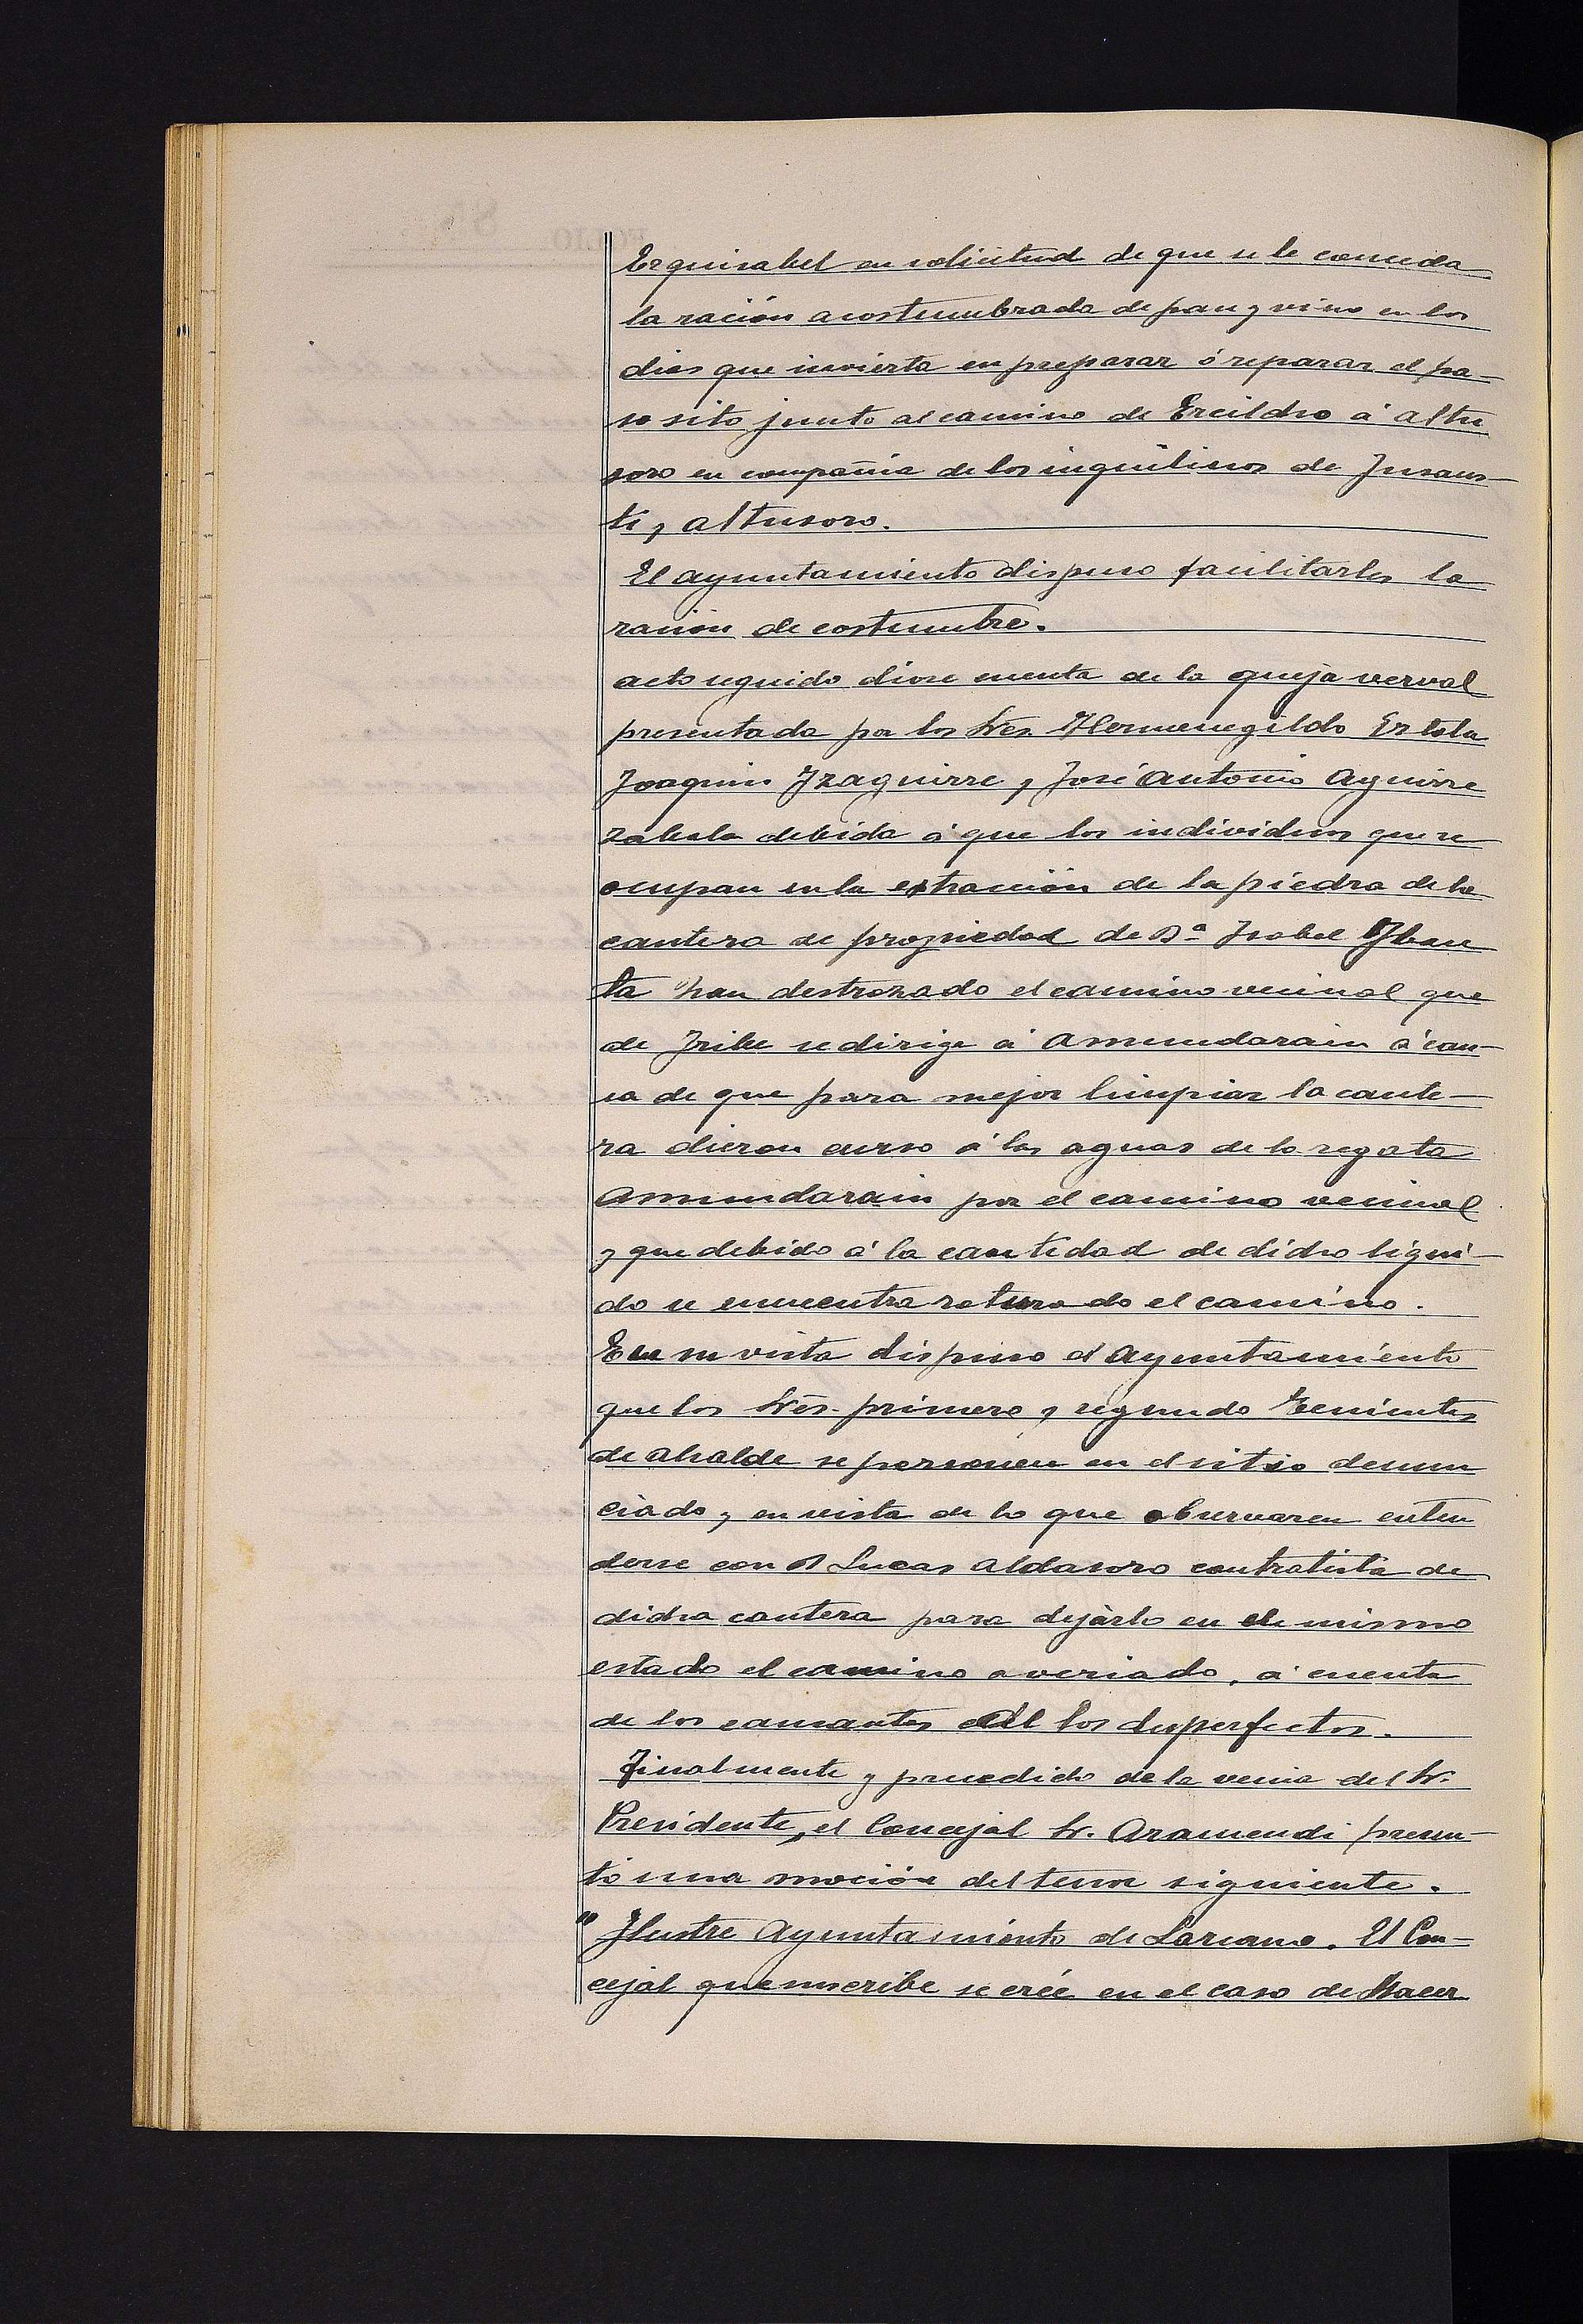 Erquisabel en solicitud de que se le conceda
la ración acostumbrada de pan y vino en los
dias que invierta en preparar ó reparar el pa-
so sito junto al camino de Ercildso á altu
soro en compañia de los inquilinos de Jusaus-
ti y altusoro.
El ayuntamiento dispuso facilitarles la
ración de costumbre.
acto seguido diose cuenta de la queja verval
presentada por los Sres. Hermenegildo
Joaquin Yzaguirre y José Antonio Aguirre
zabala debida á que los individuos que se
ocupan en la extracción de la piedra de la
cantera de propiedad de Dª Isabel
ta han destrozado el camino vecinal que
de Iribe se dirige á Amundarain á cau-
sa de que para mejor limpiar la cante-
ra dieron curso á las aguas de la regata
Amundarain por el camino vecinal
y que debido á la cantidad de dicho liqui-
do se encuentra roturado el camino.
En su vista dispuso el Ayuntamiento
que los Sres. primero y segundo Tenientes
de Alcalde se personen en el sitio denun
ciado y en vista de lo que observaren enten
derse con D Lucas Aldasoro contratista de
dicha cantera para dejarlo en el mismo
estado el camino averiado, á cuenta
de los causantes de los desperfectos.
Finalmente y precedido de la venia del Sr.
Presidente, el Concejal Sr. Aramendi presen-
tó una moción del tenor siguiente.
"Ilustre Ayuntamiento de Lazcano. El Con-
cejal que suscribe se crée en el caso de Hacer